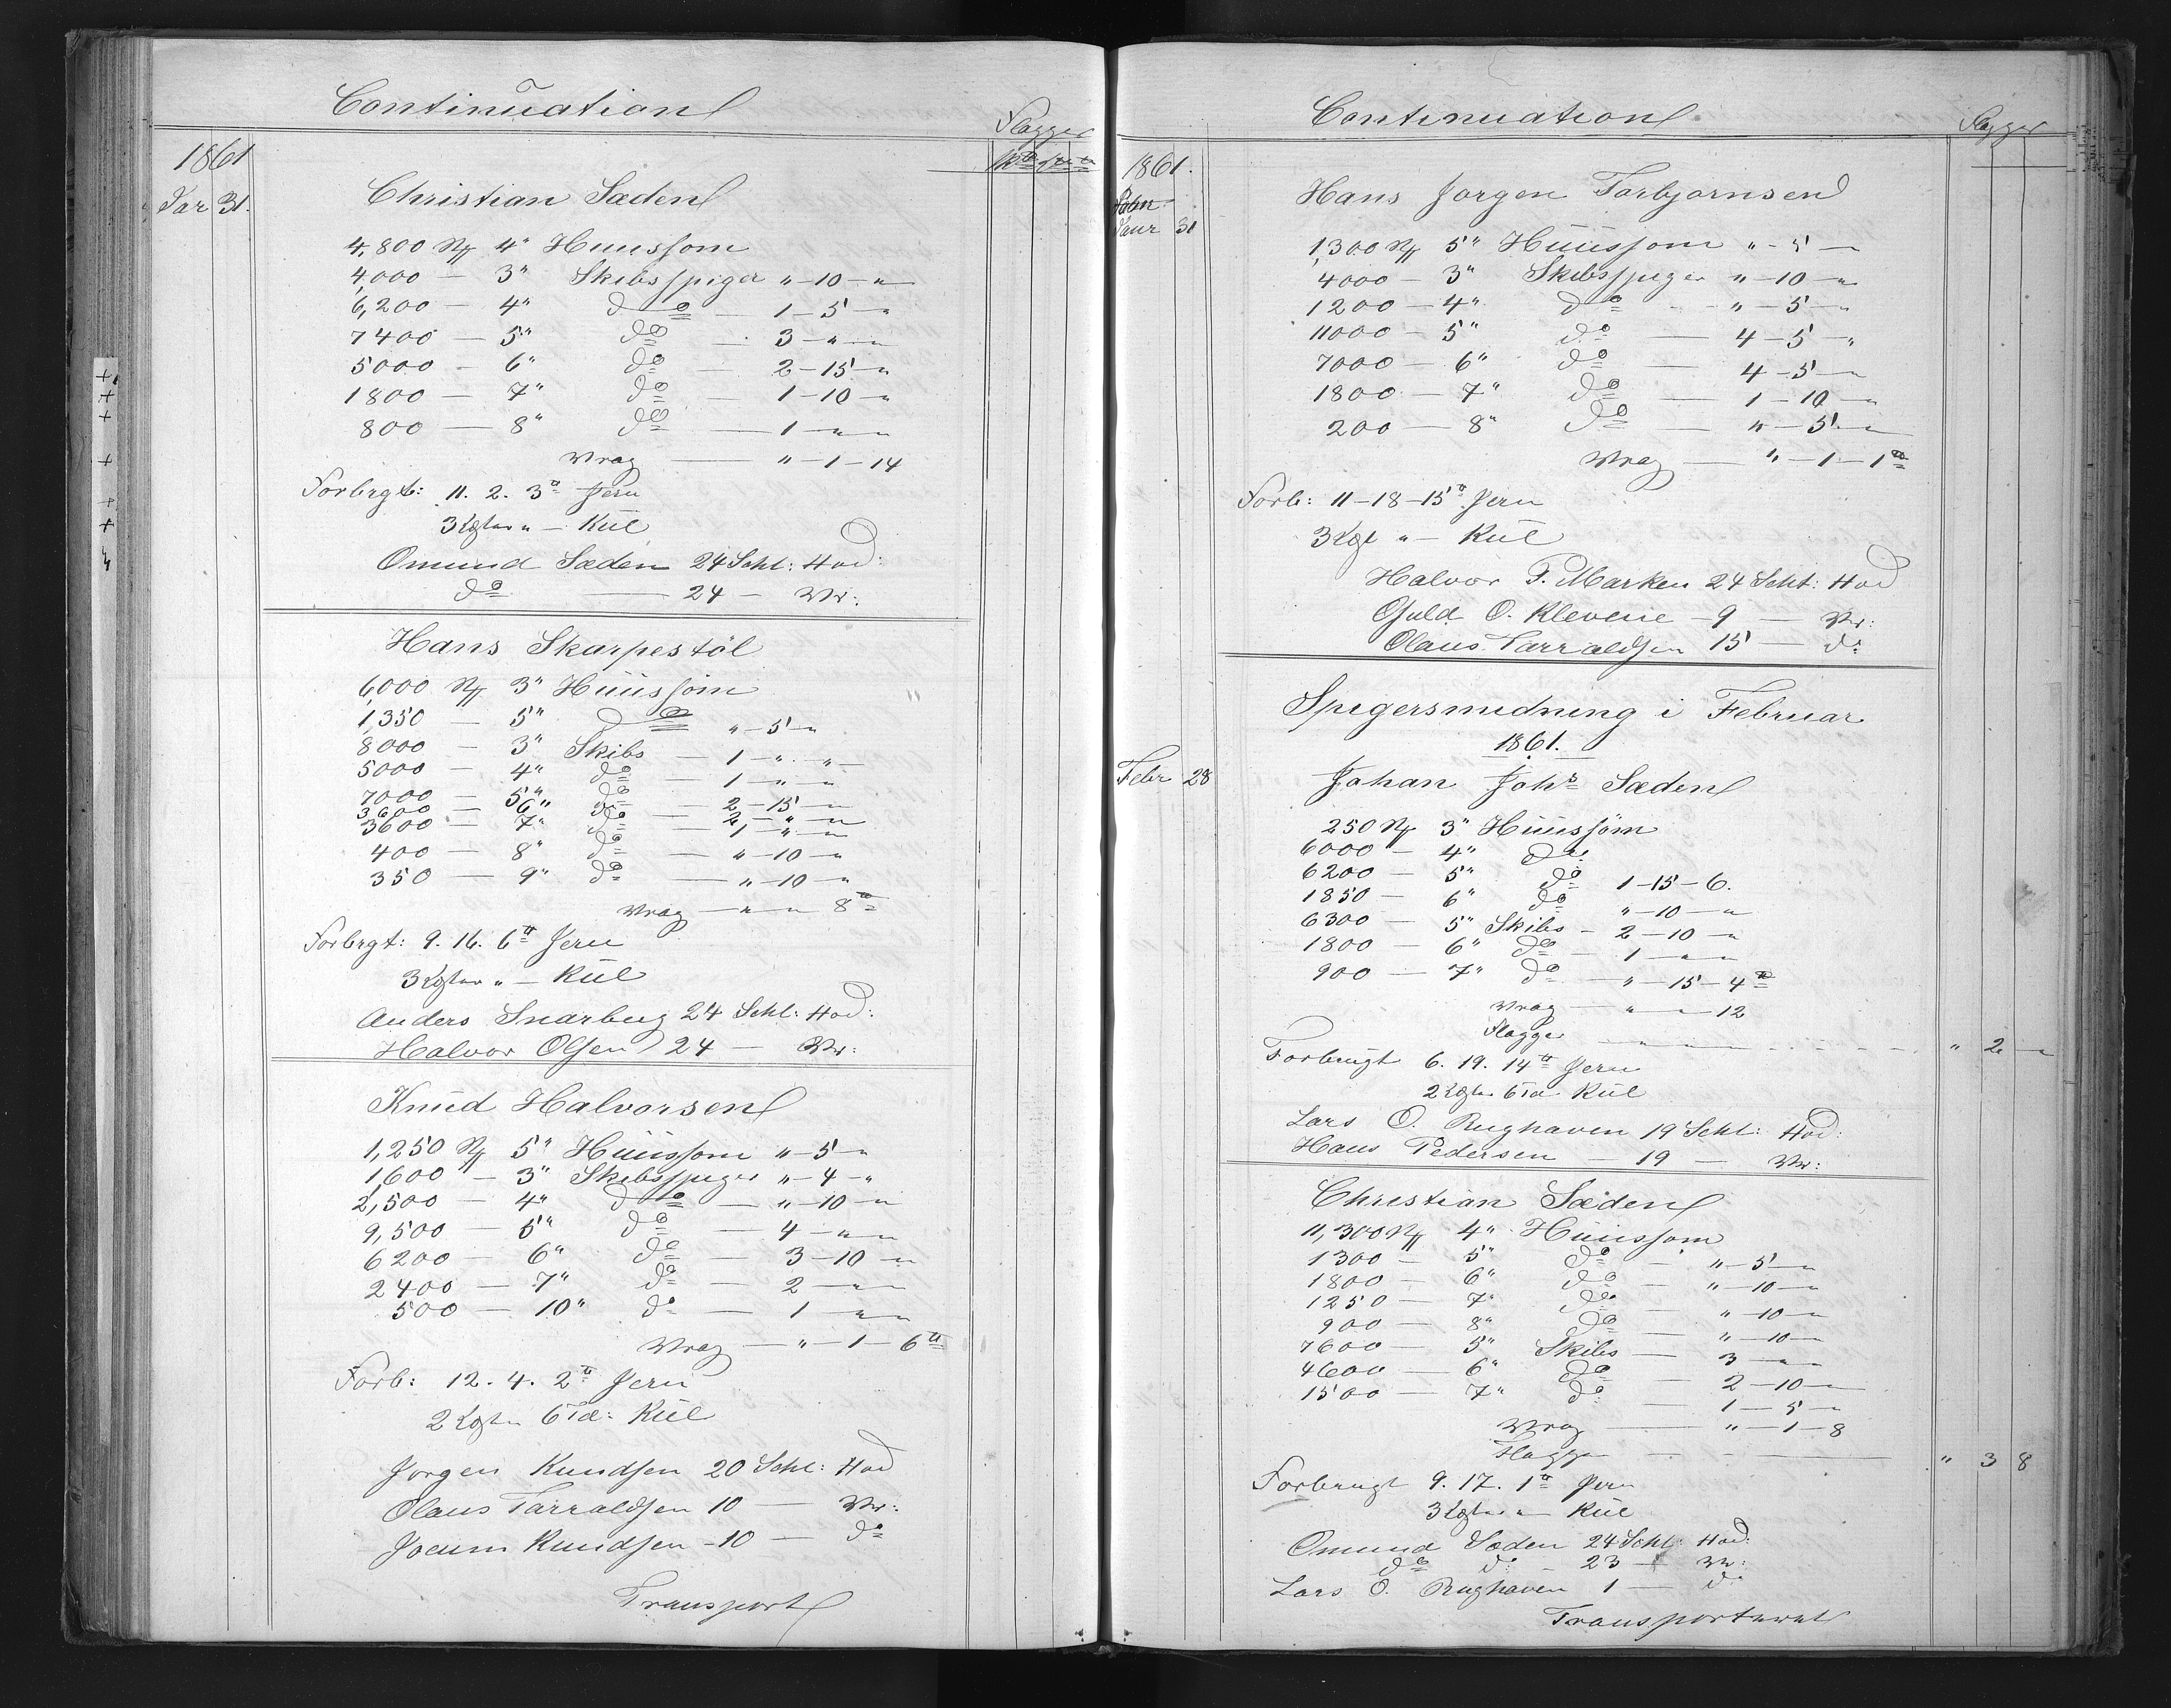 Continuation
Flagger
1861
Jar 31.
Christian Sæden
4,800 St 4" Huussøm
4,000 — 3" Skibsspiger " — 10 — "
6,200 — 4" do — 1 — 5 — "
7400 — 5" do — 3 — " — "
5000 — 6" do — 2 — 15 — "
1800 — 7" do — 1 — 10 — "
800 — 8" do — 1 — " — "
Vrag — " — 1 — 14
Forbrgt: 11. 2. 3 ℔ Jern
3 Lgter " — Kül
Omund Sæden 24 Schl: Hod:
do — 24 — Vr:
Hans Skarpestöl
6,000 St 3" Huussöm
1,350 — 5" do " — 5 — "
8000 — 3" Skibs — 1 — " — "
5000 — 4" do — 1 — " — "
7000 — 5" do — 2 — 15 — "
3600 — 6" do — 2 — " — "
3600 — 7" do — 1 — " — "
400 — 8" do — " — 10 — "
350 — 9" do — " — 10 — "
Vrag — " — " 8 ℔
Forbrgt: 9. 16. 6 ℔ Jern
3 Lgter " — Kül
Anders Snarbug 24 Schl: Hod:
Halvor Olsen 24 — Vr:
Knud Halvorsen
1,250 St 5" Huussøm " — 5 — "
1,600 — 3" Skibsspiger " — 4 — "
2,500 — 4" do — " — 10 — "
9,500 — 5" do — 4 — " — "
6200 — 6" do — 3 — 10 — "
2400 — 7" do — 2 — " — "
500 — 10" do — 1 " — "
Vrag — " — 1 — 6 ℔
Forb: 12. 4. 2 ℔ Jern
2 Lgter 6 Td: Kül
Jørgen Knudsen 20 Schl: Hod
Olaus Tarraldsen 10 — Vr:
Jocum Knudsen — 10 — do
Transport
Continuation
Flagger
1861.
Janr 31
Hans Jørgen Torbjørnsen
1,300 St 5" Huussøm " — 5 —
4000 — 3" Skibsspiger " — 10 — "
1200 — 4" do — " — 5 — "
11000 — 5" do — 4 — 5 — "
7000 — 6" do — 4 — 5 — "
1800 — 7" do — 1 — 10 — "
200 — 8" do — " — 5 — "
Vrag — " — 1 — 1 ℔
Forb: 11 — 18 — 15 ℔ Jern
3 Lgt " — Kül
Halvor T. Marken 24 Schl: Hod
Guld O. Klevene — 9 — Vr:
Olaus Tarraldsen 15 — do
Spigersmedning i Februar
1861.
Febr 28
Johan Johs Sæden
250 St 3" Huussøm
6000 — 4" do
6200 — 5" do 1 — 15 — 6.
1850 — 6" do " — 10 — "
6300 — 5" Skibs — 2 — 10 — "
1800 — 6" do — 1 — " — "
900 — 7" do — " — 15 — 4 ℔
Vrag — " — " — 12
Flagger " 2 "
Forbrugt 6. 19. 14 ℔ Jern
2 Lgter 6 Td. Kül
Lars O. Rughaven 19 Schl: Hod:
Hans Pedersen — 19 — Vr:
Christian Sæden
11,300 St 4" Huussøm
1300 — 5" do — " — 5 — "
1800 — 6" do — " — 10 — "
1250 — 7" do — " — 10 — "
900 — 8" do — " — 10 — "
7600 — 5" Skibs — 3 — " — "
4600 — 6" do — 2 — 10 — "
1500 — 7" do — 1 — 5 — "
Vrag — " — 1 — 8
Flagger " 3 8
Forbrugt 9. 17. 1 ℔ Jern
3 Lgter " Kül
Omund Sæden 24 Schl: Hod:
do do — 23 — Vr:
Lars O. Rughaven 1 — do
Transporteret